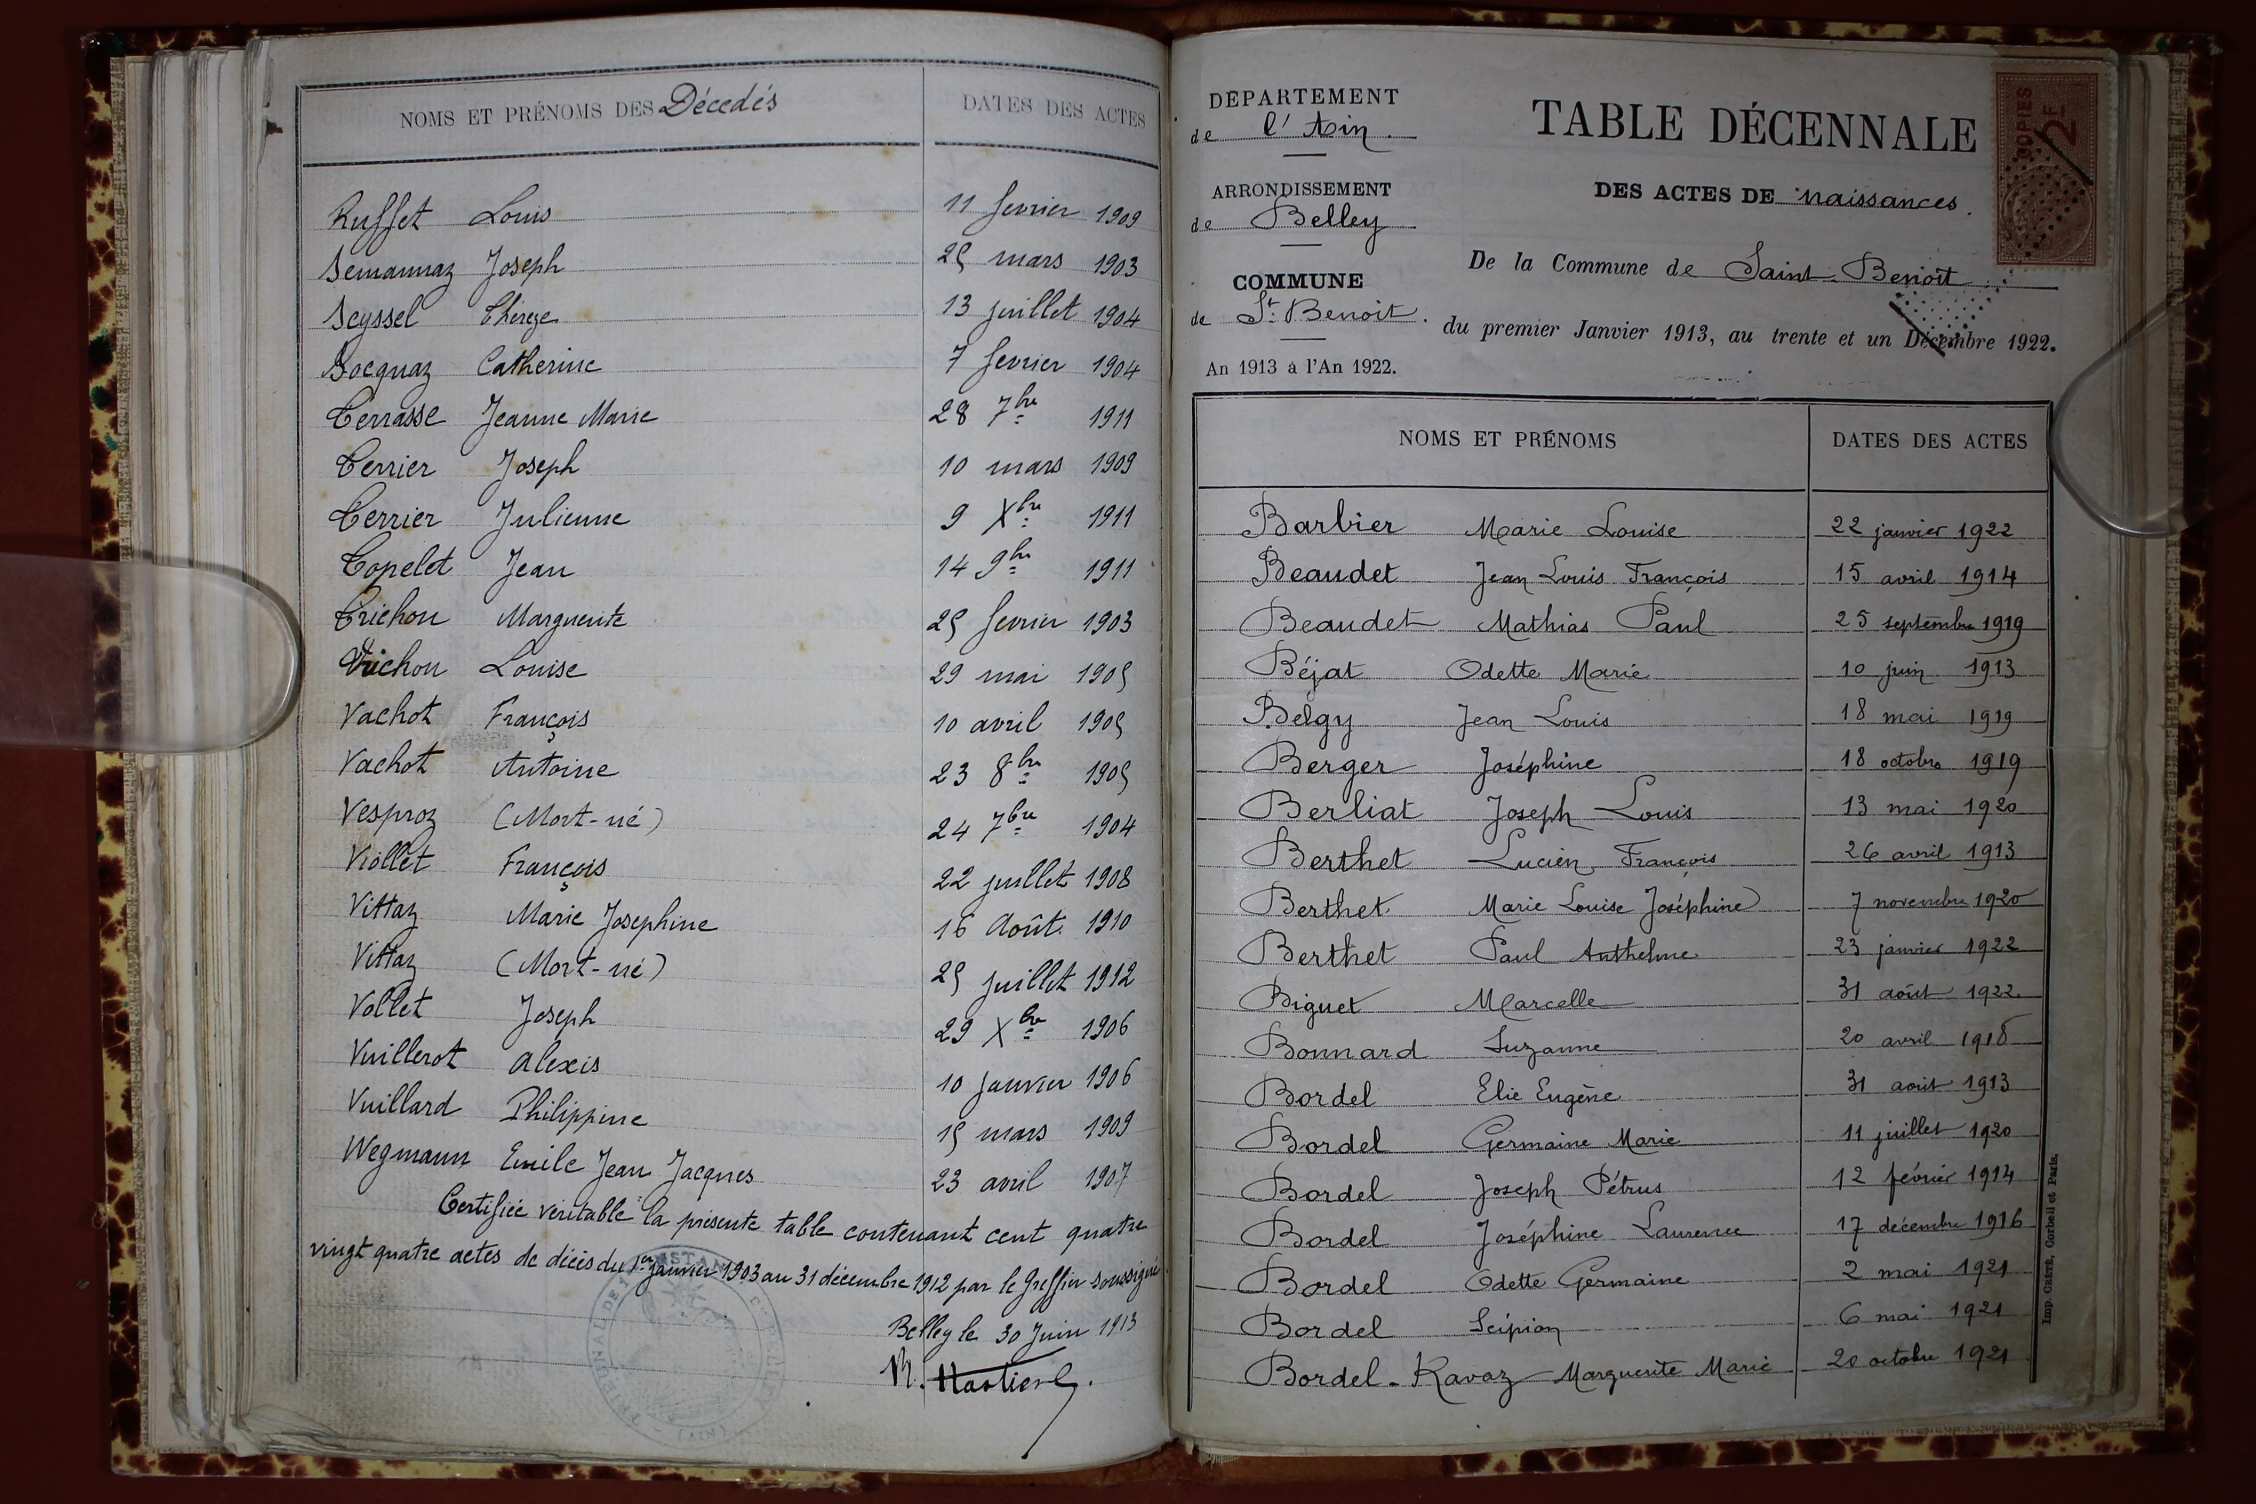 NOMS ET PRÉNOMS DES Décedés DATES DES ACTES
Ruffet Louis 11 fevrier 1909
Semannaz Joseph 25 mars 1903
Seyssel Thérèze 13 juillet 1904
Socquaz Catherine 7 fevrier 1904
Terrasse Jeanne Marie 28 7bre 1911
Terrier Joseph 10 mars 1909
Terrier Julienne 9 Xbre 1911
Topelet Jean 14 9bre 1911
Trichon Marguerite 25 fevrier 1903
Trichon Louise 29 mai 1905
Vachot François 10 avril 1905
Vachot Antoine 23 8bre 1905
Vesproz (Mort-né) 24 7bre 1904
Viollet François 22 juillet 1908
Vittaz Marie Josephine 16 Août 1910
Vittaz (Mort-né) 25 juillet 1912
Vollet Joseph 29 Xbre 1906
Vuillerot Alexis 10 janvier 1906
Vuillard Philippine 15 mars 1909
Wegmann Emile Jean Jacques 23 avril 1907
Certifiée véritable la présente table contenant cent quatre
vingt quatre actes de décès du 1er janvier 1903 au 31 décembre 1912 par le Greffier soussigné
Belley le 30 Juin 1913
DÉPARTEMENT
de l'Ain.
ARRONDISSEMENT
de Belley
COMMUNE
de St. Benoit.
An 1913 à l'An 1922.
TABLE DÉCENNALE
DES ACTES DE naissances.
De la Commune de Saint-Benoît
du premier Janvier 1913, au trente et un Décembre 1922.
COPIES
2F
NOMS ET PRÉNOMS DATES DES ACTES
Barbier Marie Louise 22 janvier 1922
Beaudet Jean Louis François 15 avril 1914
Beaudet Mathias Paul 25 septembre 1919
Béjat Odette Marie 10 juin 1913
Belgy Jean Louis 18 mai 1919
Berger Joséphine 18 octobre 1919
Berliat Joseph Louis 13 mai 1920
Berthet Lucien François 26 avril 1913
Berthet Marie Louise Joséphine 7 novembre 1920
Berthet Paul Anthelme 23 janvier 1922
Biguet Marcelle 31 août 1922
Bonnard Suzanne 20 avril 1918
Bordel Elie Eugène 31 août 1913
Bordel Germaine Marie 11 juillet 1920
Bordel Joseph Pétrus 12 février 1914
Bordel Joséphine Laurence 17 décembre 1916
Bordel Odette Germaine 2 mai 1921
Bordel Scipion 6 mai 1921
Bordel-Ravaz Marguerite Marie 20 octobre 1921
Imp. CRÉTÉ, Corbeil et Paris.